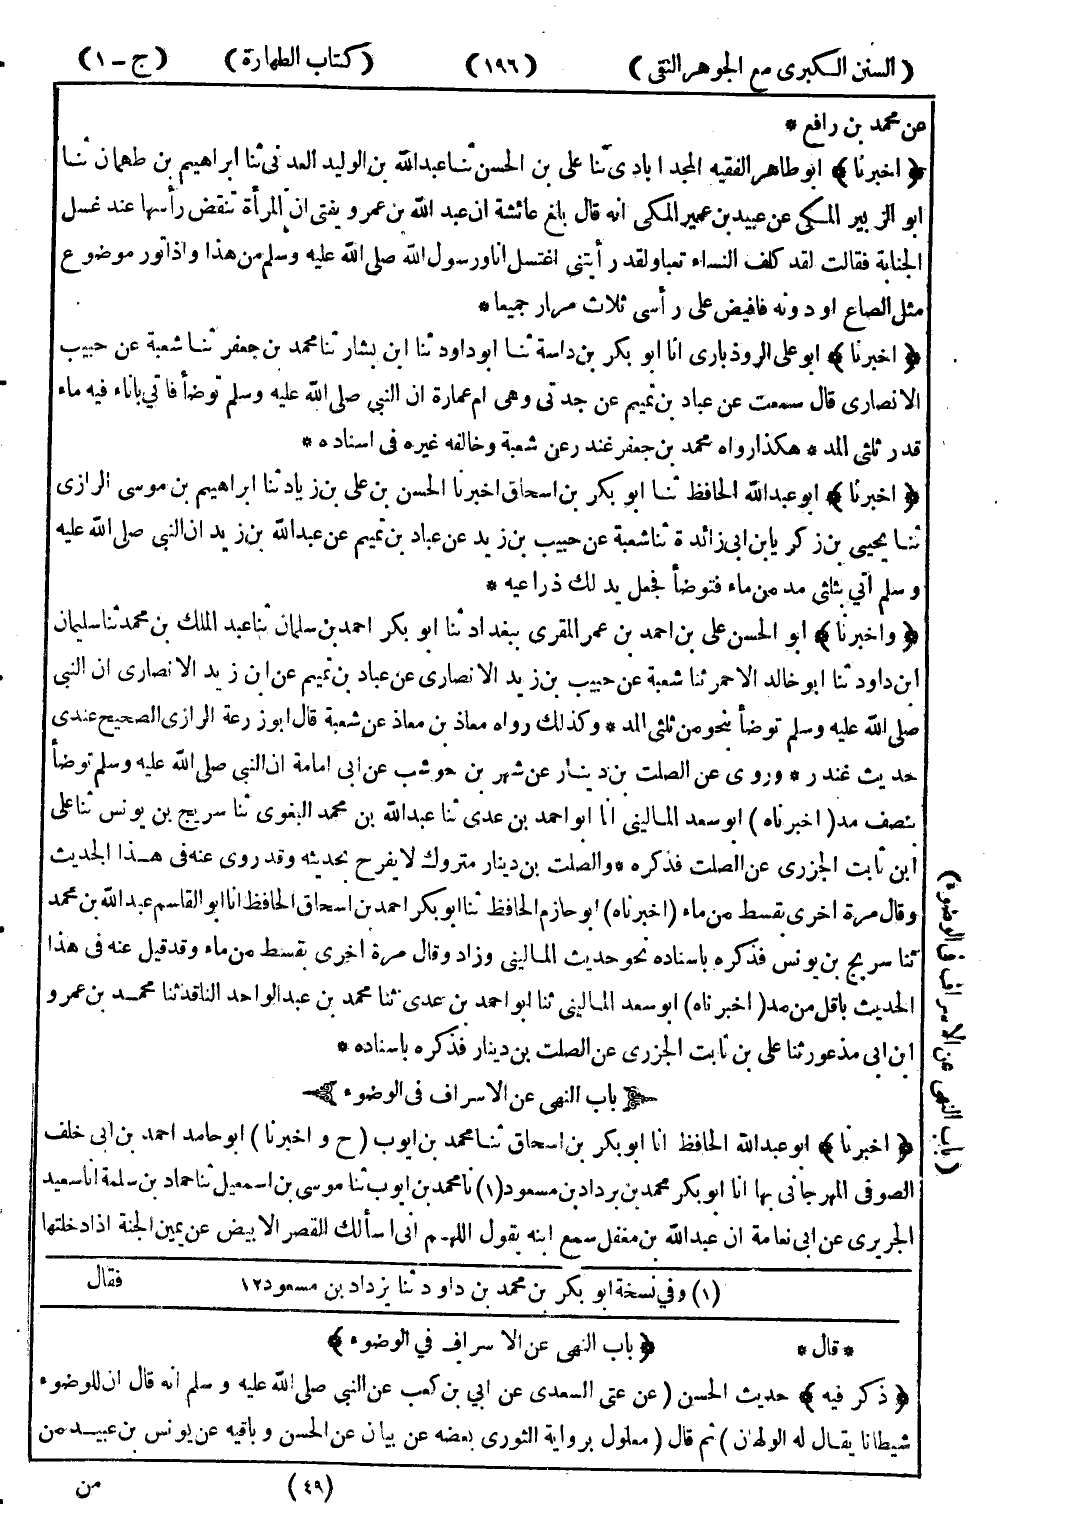 (السنن الكبرى مع الجوهر النقى) (١٩٦) (كتاب الطهارة) (ج-١)
عن محمد بن رافع *
﴿ اخبرنا ﴾ ابو طاهر الفقيه المجد ابادى ثنا على بن الحسن ثنا عبدالله بن الوليد العدنى ثنا ابراهيم بن طهمان ثنا
ابو الزبير المكى عن عبيد بن عمير المكى انه قال بلغ عائشة ان عبد الله بن عمرو يفتى ان المرأة تنقض رأسها عند غسل
الجنابة فقالت لقد كلف النساء تعبا ولقد رأيتنى اغتسل انا ورسول الله صلى الله عليه وسلم من هذا واذا تور موضوع
مثل الصاع او دونه فافيض على رأسى ثلاث مرار جميعا *
﴿ اخبرنا ﴾ ابو على الروذبارى انا ابو بكر بن داسة ثنا ابو داود ثنا ابن بشار ثنا محمد بن جعفر ثنا شعبة عن حبيب
الانصارى قال سمعت عن عباد بن تميم عن جدتى وهى ام عمارة ان النبي صلى الله عليه وسلم توضأ فاتي باناء فيه ماء
قدر ثلثي المد * هكذا رواه محمد بن جعفر غندر عن شعبة وخالفه غيره فى اسناده *
﴿ اخبرنا ﴾ ابو عبدالله الحافظ ثنا ابو بكر بن اسحاق اخبرنا الحسن بن على بن زياد ثنا ابراهيم بن موسى الرازى
ثنا يحيى بن زكريا بن ابى زائدة ثنا شعبة عن حبيب بن زيد عن عباد بن تميم عن عبدالله بن زيد ان النبى صلى الله عليه
وسلم اتي بثلثى مد من ماء فتوضأ فجعل يدلك ذراعيه *
﴿ واخبرنا ﴾ ابو الحسن على بن احمد بن عمر المقرى ببغداد ثنا ابو بكر احمد بن سلمان ثنا عبد الملك بن محمد ثنا سليمان
ابن داود ثنا ابو خالد الاحمر ثنا شعبة عن حبيب بن زيد الانصارى عن عباد بن تميم عن ابن زيد الانصارى ان النبي
صلى الله عليه وسلم توضأ بنحو من ثلثي المد * وكذلك رواه معاذ بن معاذ عن شعبة قال ابو زرعة الرازى الصحيح عندى
حديث غندر * وروى عن الصلت بن دينار عن شهر بن حوشب عن ابى امامة ان النبي صلى الله عليه وسلم توضأ
بنصف مد (اخبرناه) ابو سعد الماليني انا ابو احمد بن عدى ثنا عبدالله بن محمد البغوى ثنا سريج بن يونس ثنا على
ابن ثابت الجزرى عن الصلت فذكره * والصلت بن دينار متروك لا يفرح بحديثه وقد روى عنه فى هذا الحديث
وقال مرة اخرى بقسط من ماء (اخبرناه) ابو حازم الحافظ ثنا ابو بكر احمد بن اسحاق الحافظ انا ابو القاسم عبدالله بن محمد
ثنا سريج بن يونس فذكره باسناده نحو حديث الماليني وزاد وقال مرة اخرى بقسط من ماء وقد قيل عنه فى هذا
الحديث باقل من مد (اخبرناه) ابو سعد الماليني ثنا ابو احمد بن عدى ثنا محمد بن عبد الواحد الناقد ثنا محمد بن عمرو
ابن ابى مذعور ثنا على بن ثابت الجزرى عن الصلت بن دينار فذكره باسناده *
باب النهى عن الاسراف فى الوضوء
﴿ اخبرنا ﴾ ابو عبدالله الحافظ انا ابو بكر بن اسحاق ثنا محمد بن ايوب (ح واخبرنا) ابو حامد احمد بن ابى خلف
الصوفى المهرجانى بها انا ابو بكر محمد بن برداد بن مسعود (١) نا محمد بن ايوب ثنا موسى بن اسمعيل ثنا حماد بن سلمة انا سعيد
الجريرى عن ابى نعامة ان عبدالله بن مغفل سمع ابنه يقول اللهم انى اسألك القصر الابيض عن يمين الجنة اذا دخلتها
فقال
(١) وفي نسخة ابو بكر بن محمد بن داود ثنا يزداد بن مسعود ١٢
* قال * ﴿ باب النهى عن الاسراف في الوضوء ﴾
﴿ ذكر فيه ﴾ حديث الحسن (عن عتى السعدى عن ابي بن كعب عن النبي صلى الله عليه وسلم انه قال ان للوضوء
شيطانا يقال له الولهان) ثم قال (معلول برواية الثورى بعضه عن بيان عن الحسن وباقيه عن يونس بن عبيد من
(٤٩) من
(باب النهى عن الاسراف فى الوضوء)